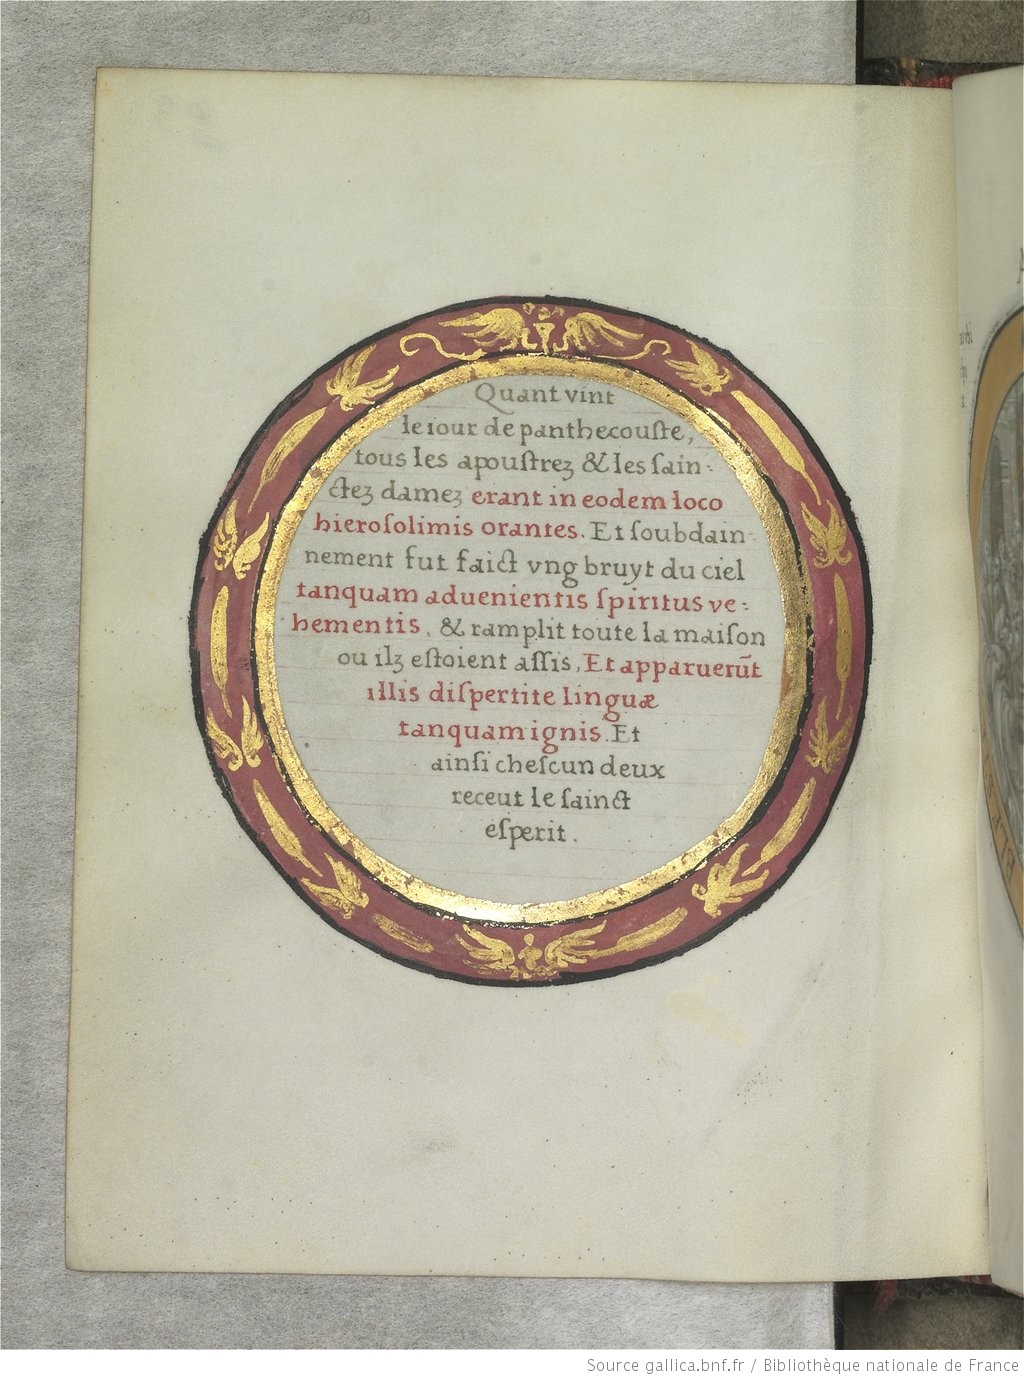 Quant vint
le iour de panthecouſte,
tous les apouſtrez & les ſain-
ctez damez erant in eodem loco
hieroſolimis orantes. Et ſoubdain-
nement fut faict vng bruyt du ciel
tanquam aduenientis ſpiritus ve-
hementis, & ramplit toute la maiſon
ou ilz eſtoient aſſis. Et apparuerūt
illis diſpertite linguæ
tanquam ignis. Et
ainſi cheſcun deux
receut le ſainct
eſperit.
Source gallica.bnf.fr / Bibliothèque nationale de France